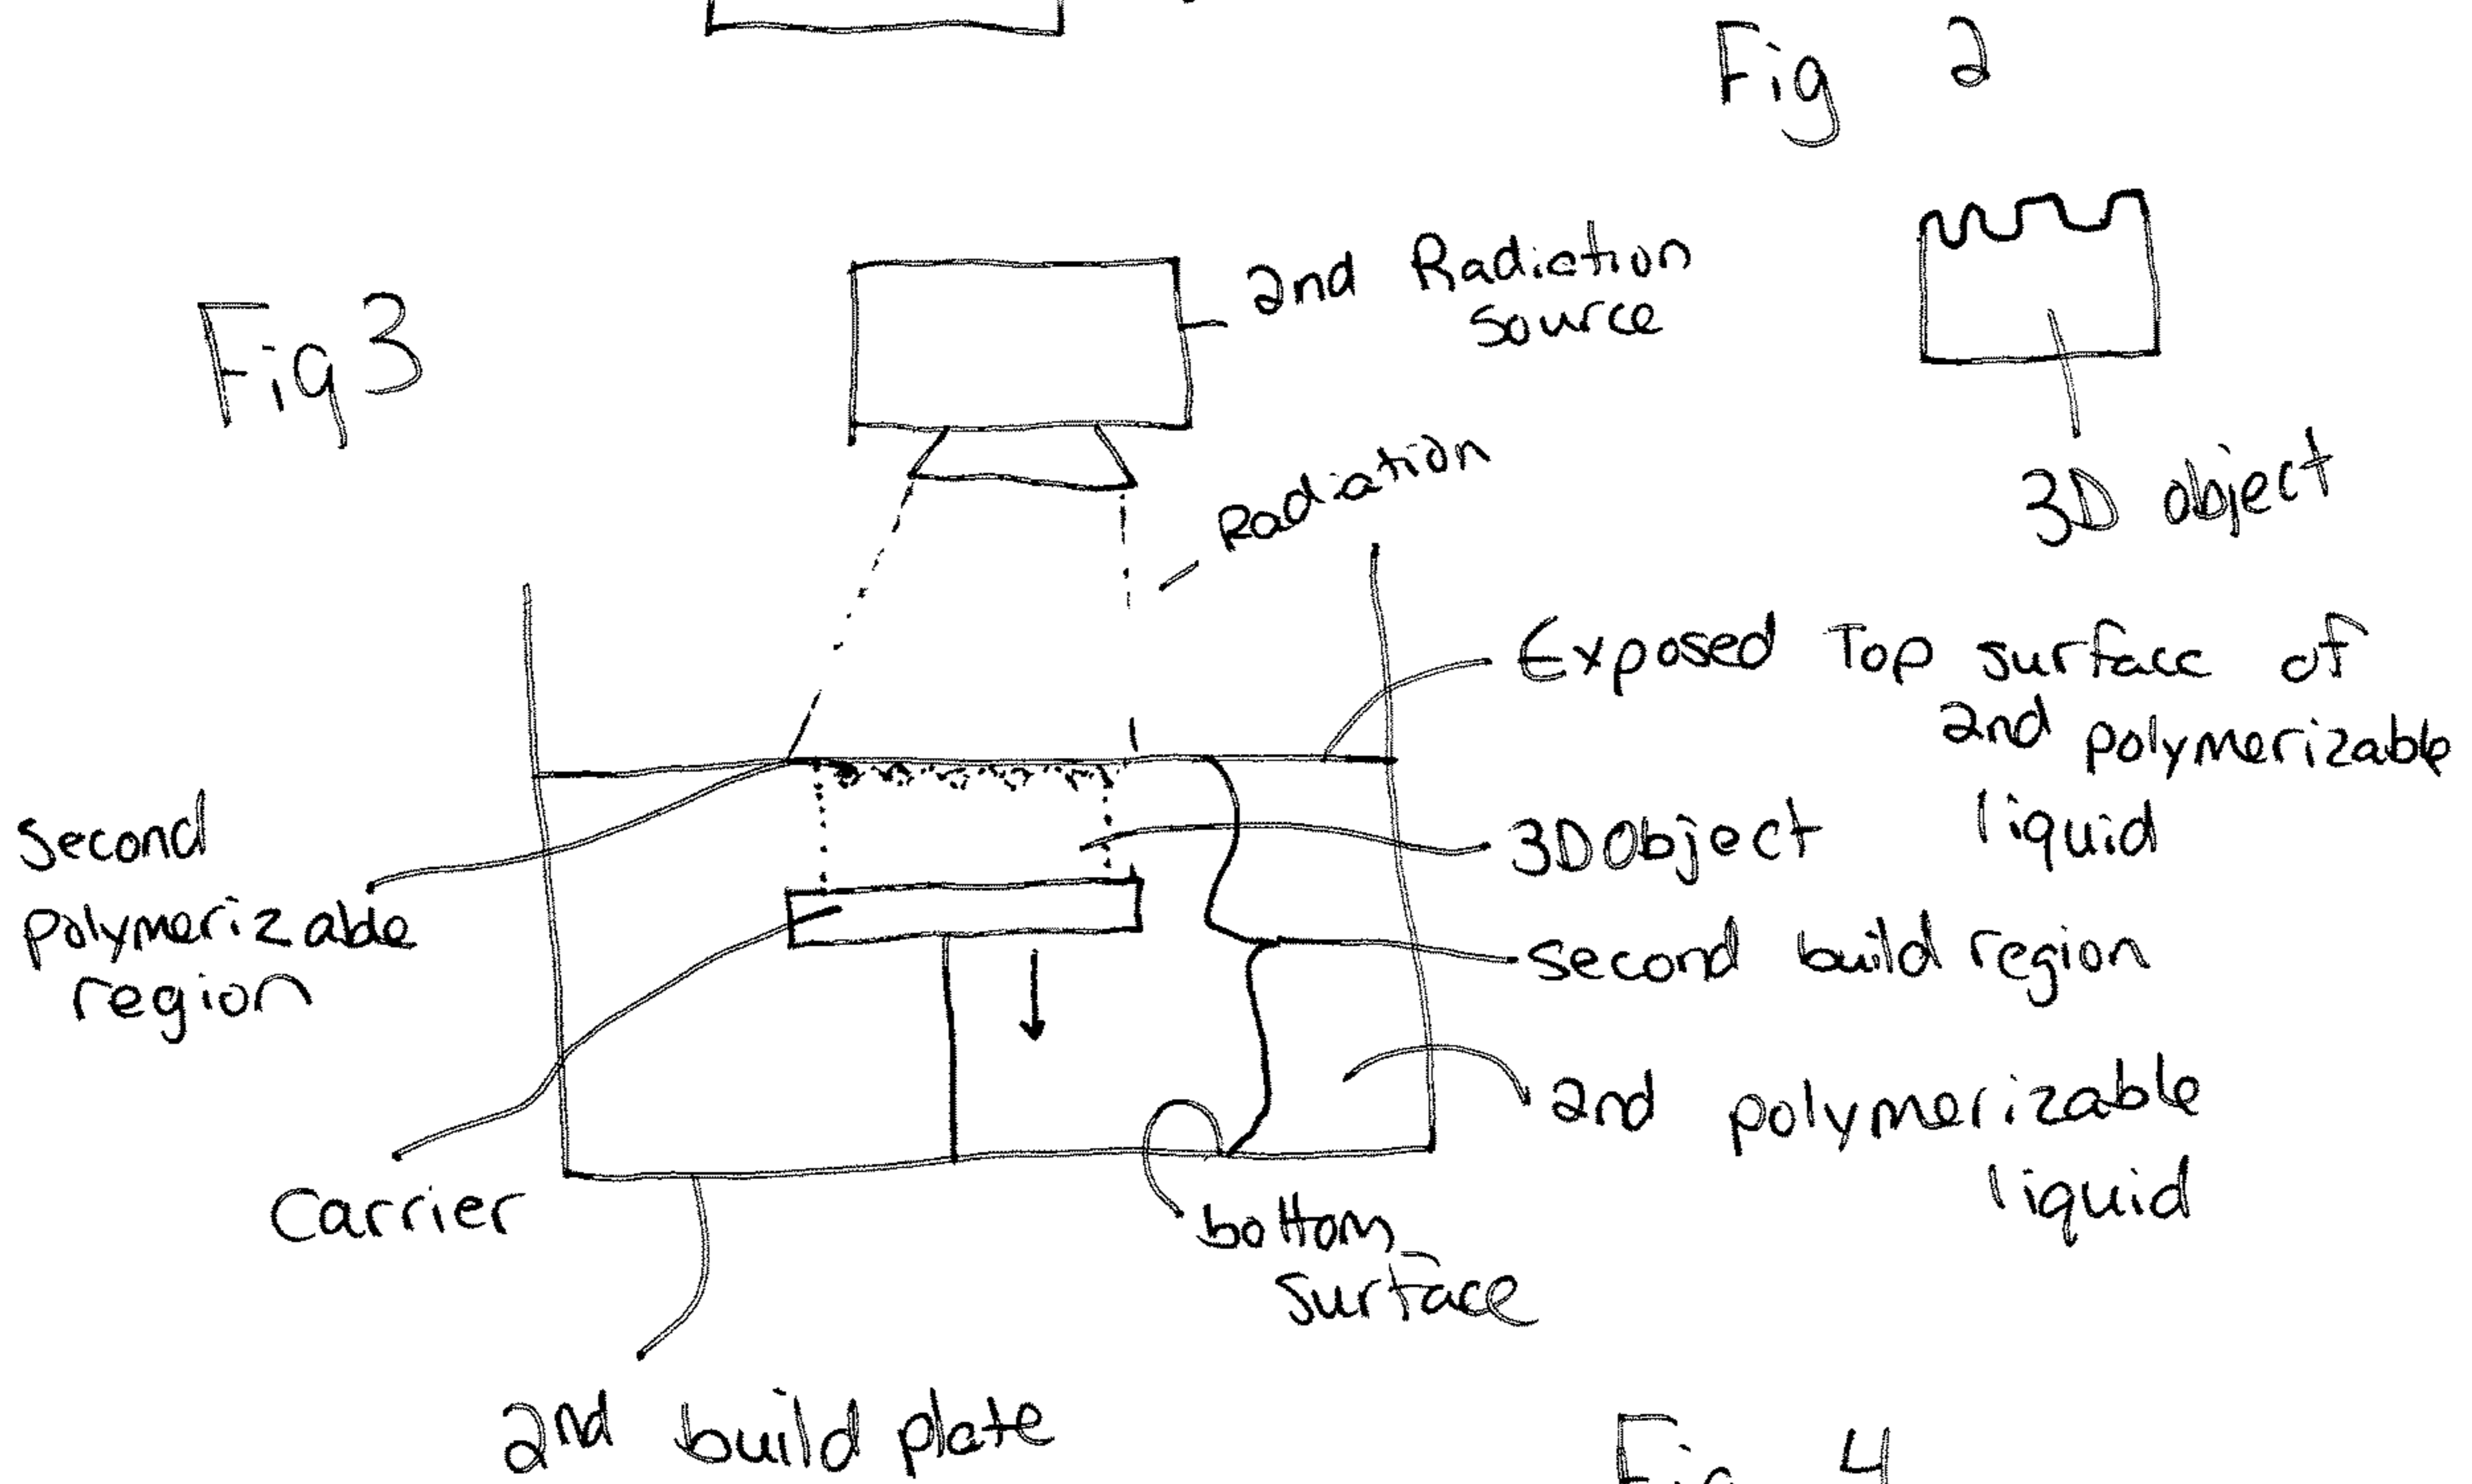 Fig 2
Fig 3
2nd Radiation
source
3D object
Radiation
Exposed Top surface of
2nd polymerizable
liquid
3D Object
Second
polymerizable
region
second build region
2nd polymerizable
liquid
Carrier
bottom
surface
2nd build plate
Fig 4